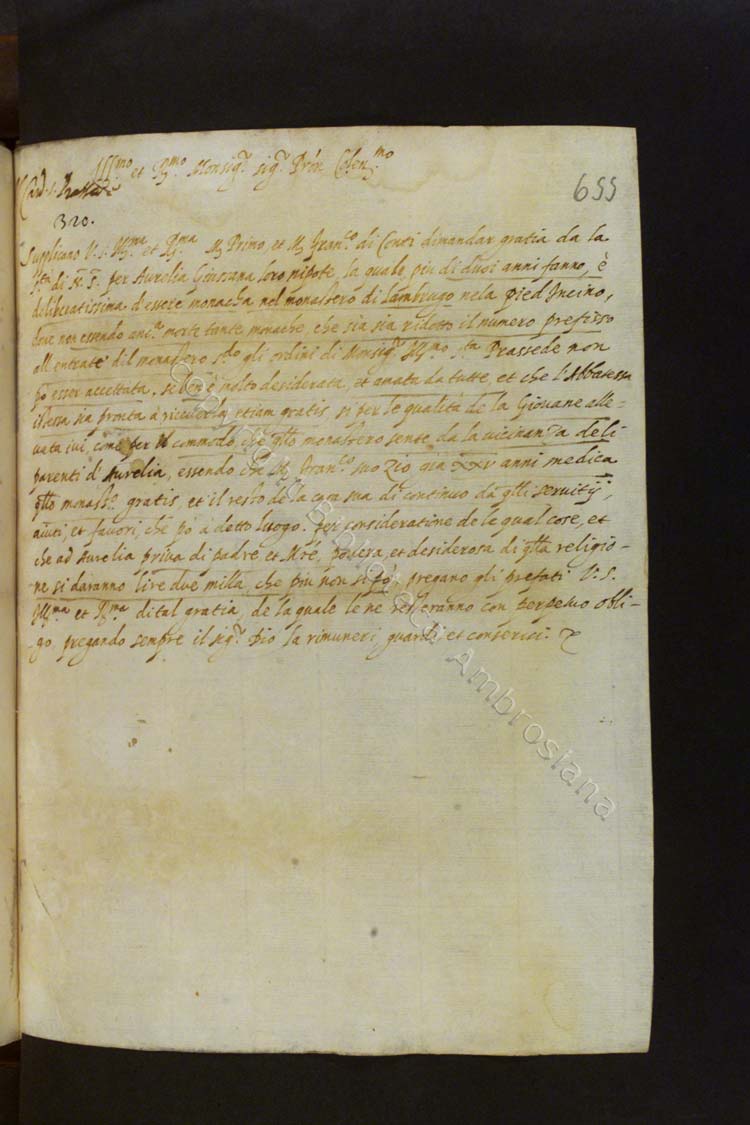 Ill.mo et R.mo Monsig.r sig.r Pron Colen.mo
Card. s. Prassede
655
320.
Supplicano V. S. Ill.ma et R.ma M. Primo, et M. Franc.o di Conti dimandar gratia da la
S.tà di N. S. per Aurelia Giussana loro nipote, la quale piu di duoi anni fanno, è
deliberatissima d'essere monacha nel monastero di Lambrugo nela pieve d'Incino,
dove non essendo anc.a morte tante monache, che sia sia ridotto il numero prefisso
all entrate dil monastero s.do gli ordini di Monsig.r Ill.mo S.ta Prassede non
po esser accettata, se ben è molto desiderata, et amata da tutte, et che l'Abbatessa
istessa sia pronta à riceverla etiam gratis, si per le qualità de la Giovane alle-
vata ivi, come per il commodo, che q.llo monastero sente da la vicinanza deli
parenti d'Aurelia, essendo che M. Franc.o suo zio già XXV anni medica
q.llo monast.o gratis, et il resto de la casa sua di continuo da q.lli servitij,
aiuti, et favori, che pò à detto luogo. Per consideratione de le qual cose, et
che ad Aurelia priva di padre et Mre, povera, et desiderosa di q.lla religio-
ne si daranno lire due milla, che piu non si pò, pregano gli prefati V. S.
Ill.ma et R.ma di tal gratia, de la quale le ne resteranno con perpetuo obli-
-go pregando sempre il sig.r Dio la rimuneri, guardi et conservi.
Biblioteca Ambrosiana